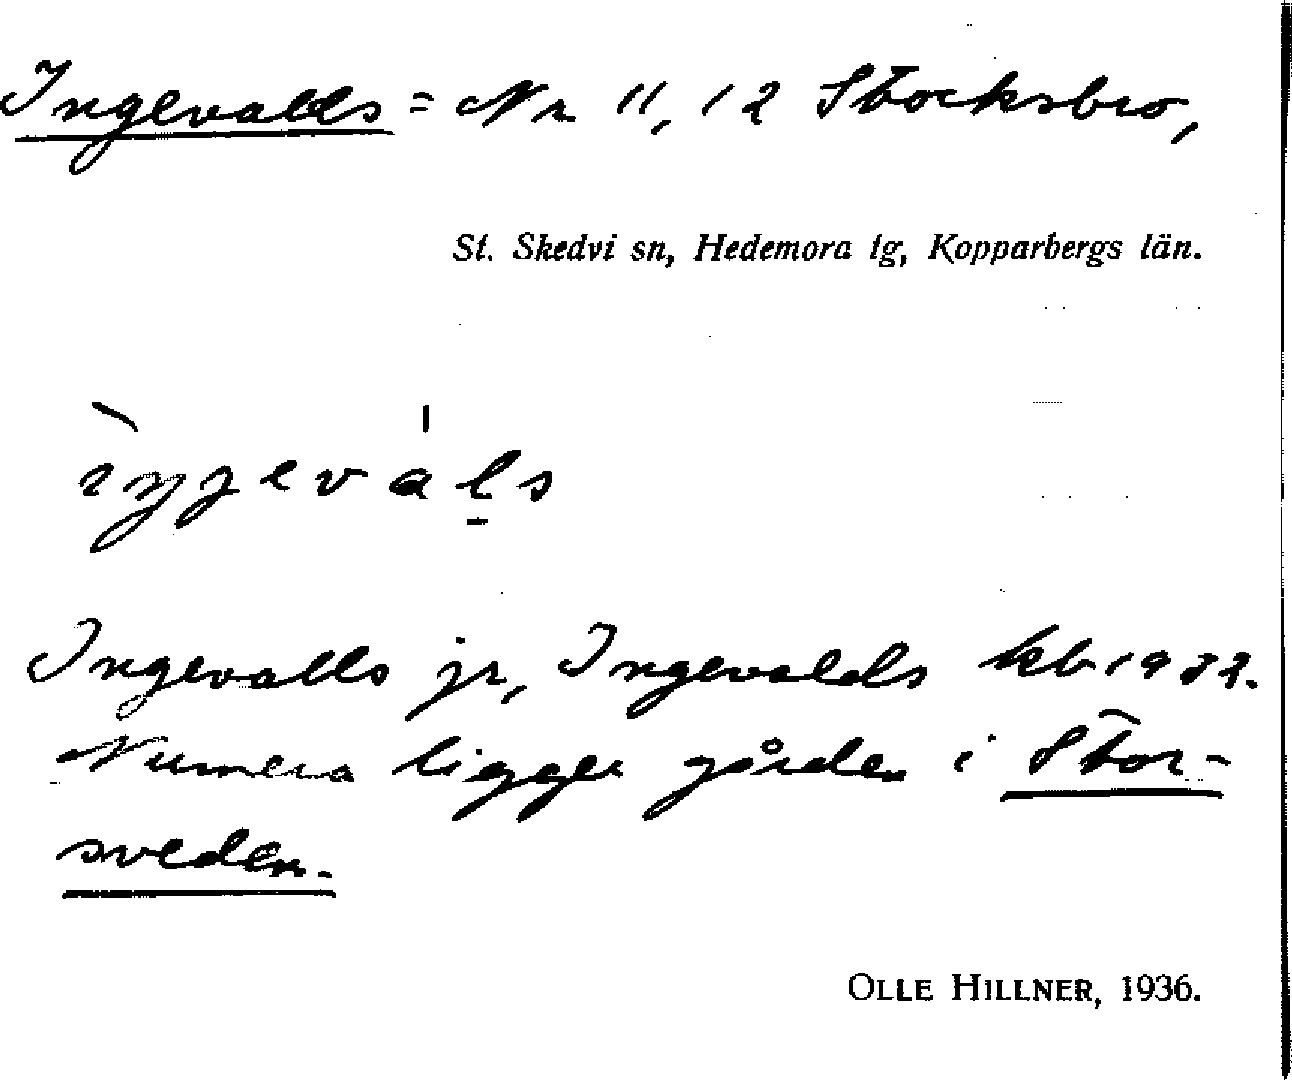 Ingevalds = Nr 11, 12 Stocksbro,
St. Skedvi sn, Hedemora tg, Kopparbergs län.
Ingevalls jr, Ingevalds kb 1932.
Numera ligger gården i Stor-
sveden.
OLLE HILLNER, 1936.